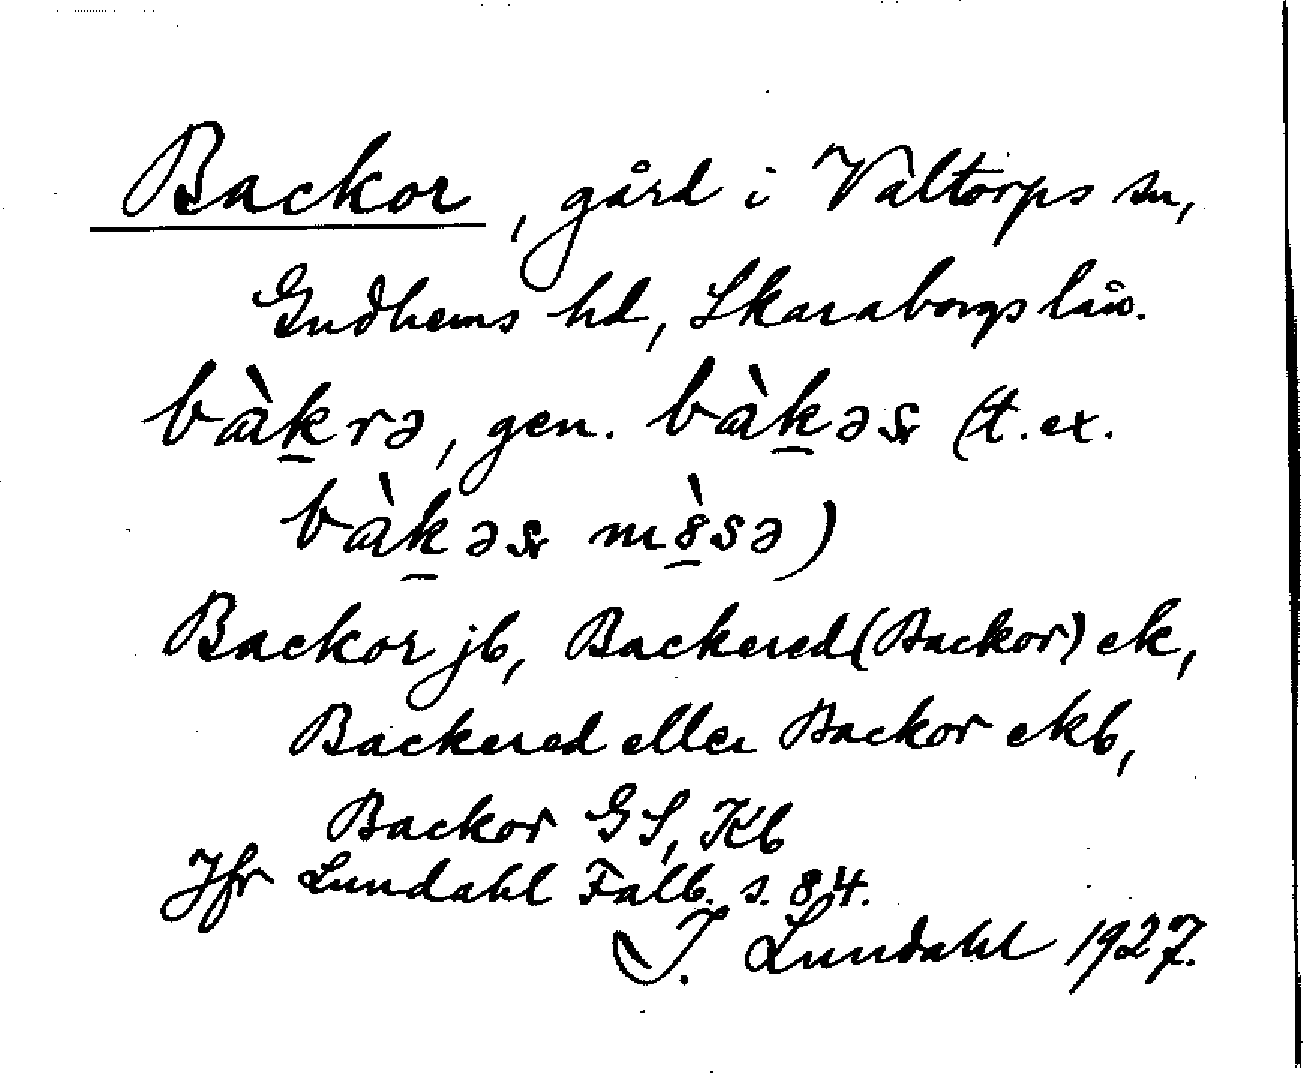 Backor, gård i Valtorps sn,
Gudhems hd, Skaraborgs län.
bàk̠rə, gen. bàk̠əʂ (t.ex.
bàk̠əʂ mò̠sə)
Backor jb, Backered (Backor) ek,
Backered eller Backor ekb,
Backor GS, Kb
Jfr Lundahl Falb. s. 84.
I. Lundahl 1927.